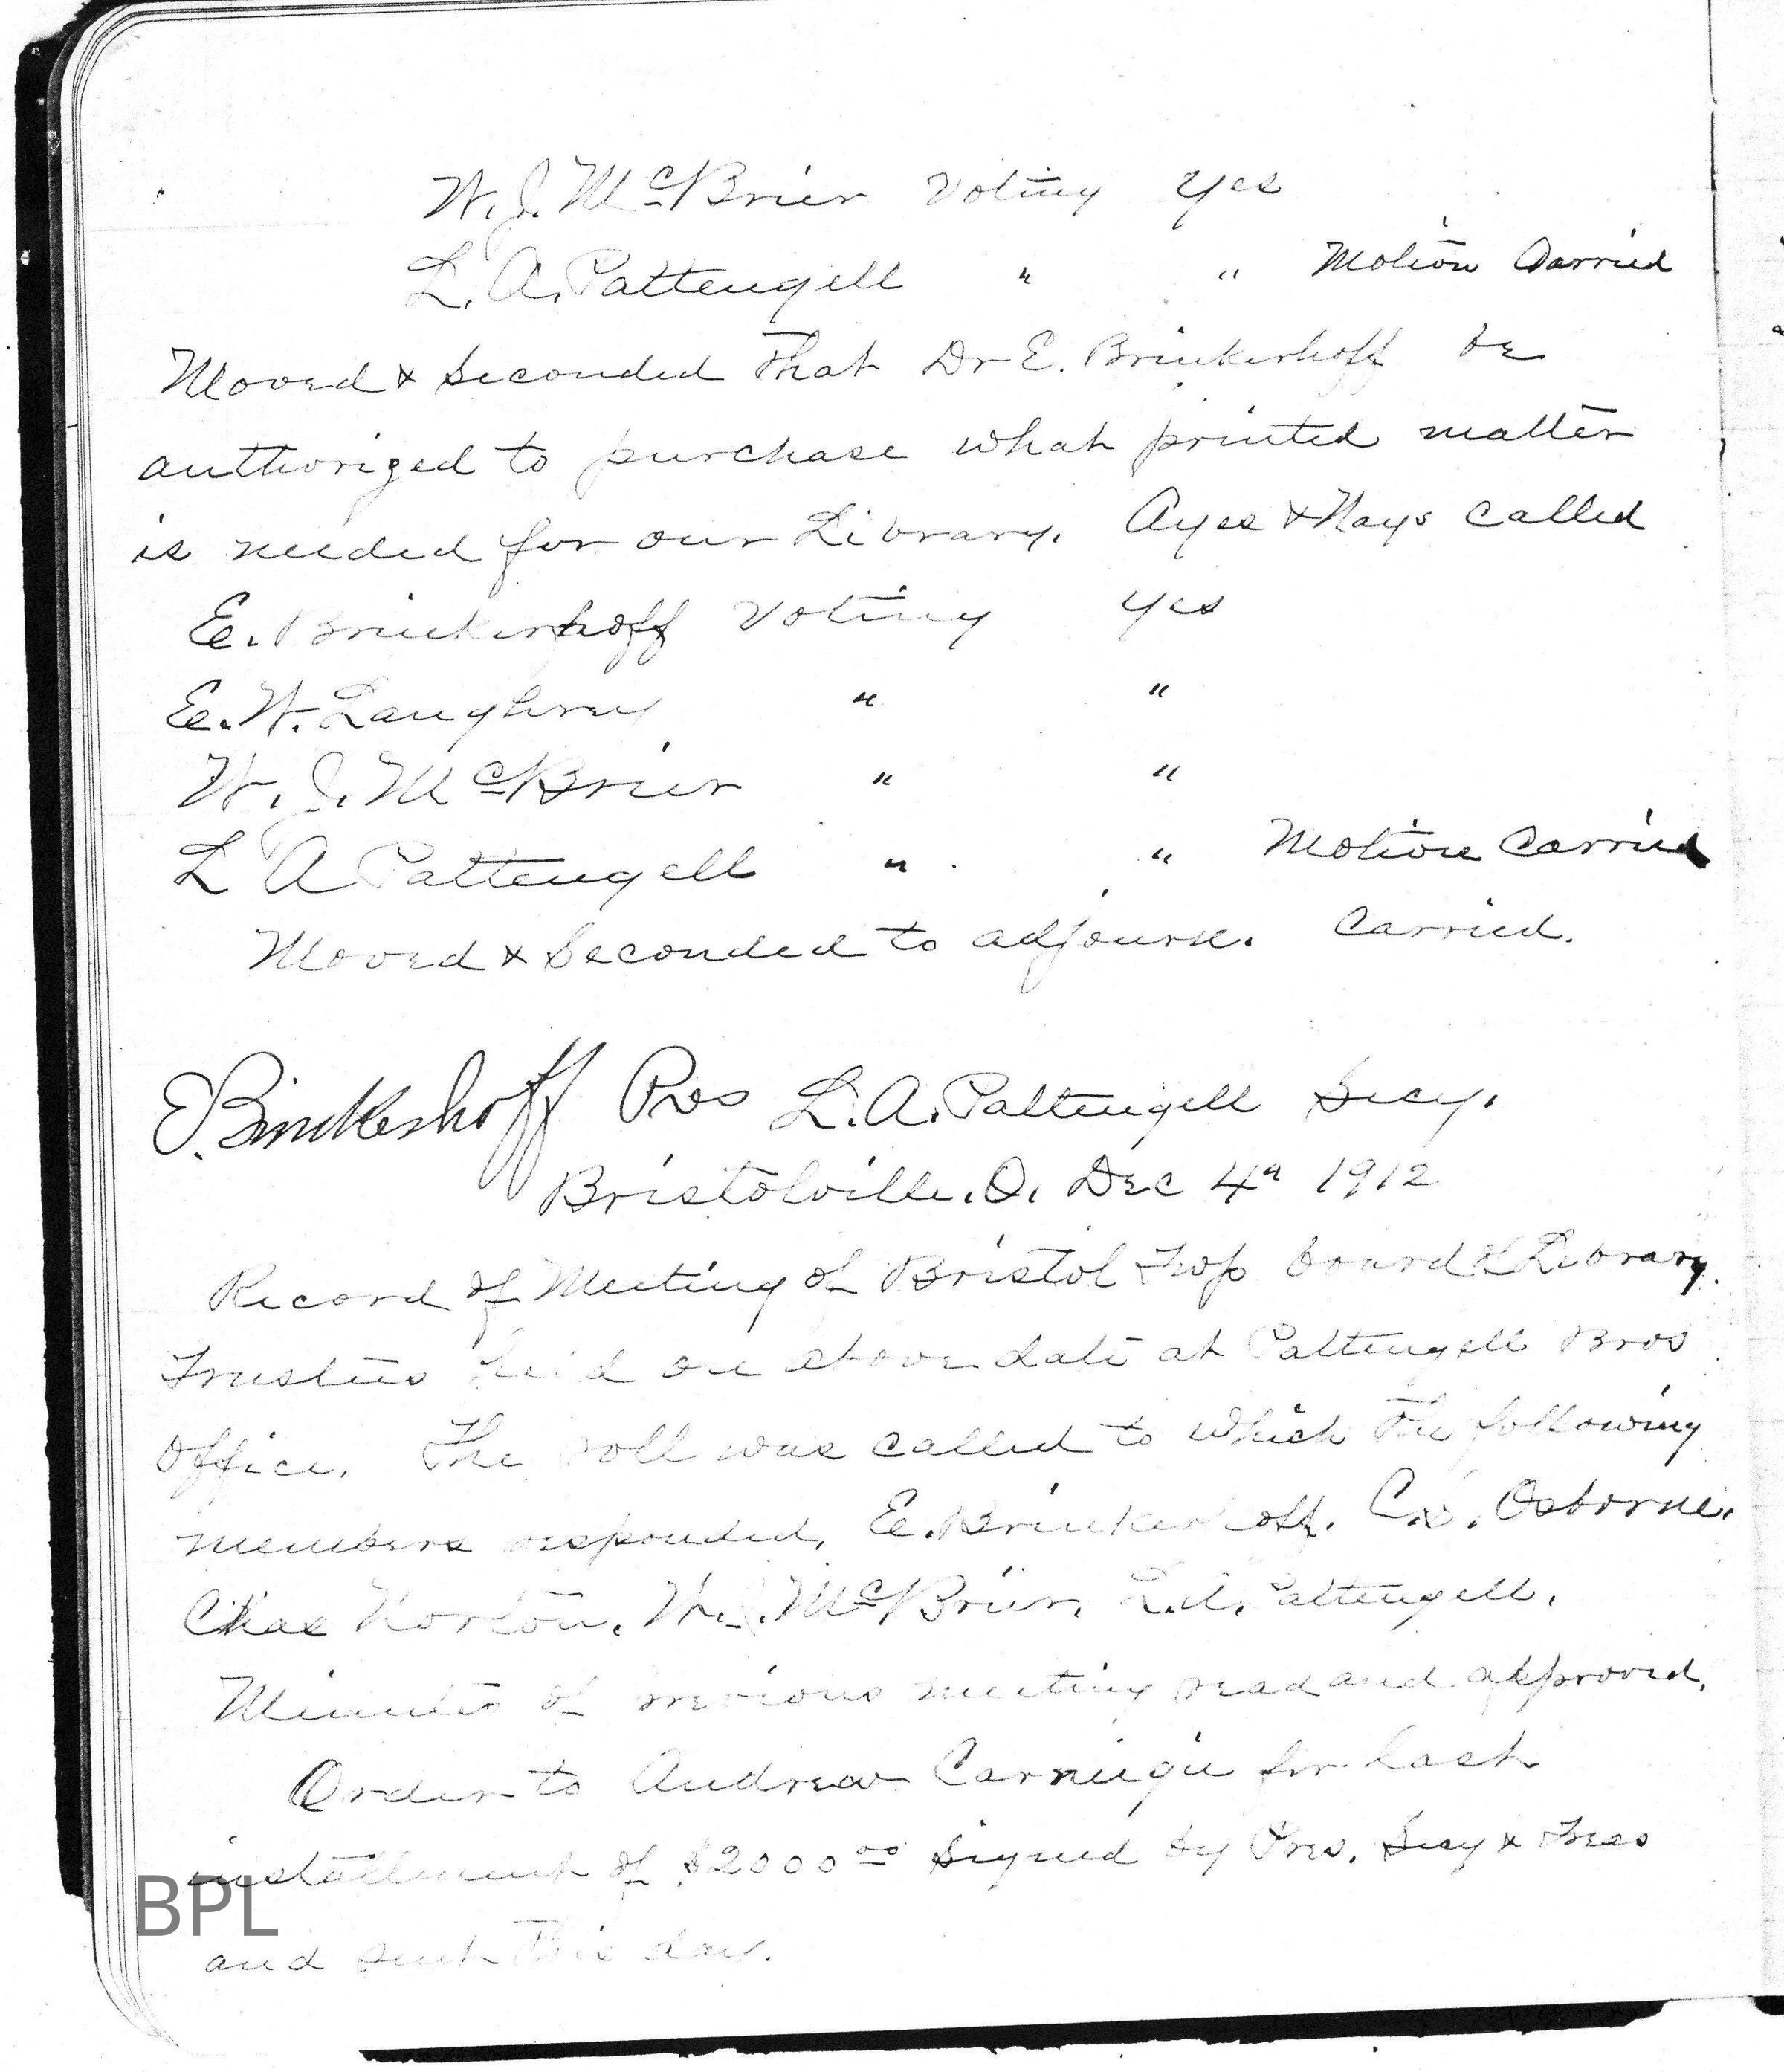 W. J. McBrier Voting Yes
L. A. Pattengell " " Motion Carried
Moved & Seconded That Dr E. Brinkerhoff be
authorized to purchase what printed matter
is needed for our Library. Ayes & Nays Called
E. Brinkerhoff Voting Yes
E. W. Laughrey " "
W. J. McBrier " "
L A Pattengell " " Motion Carried
Moved & Seconded to adjourn. Carried.
E. Brinkerhoff Pres L. A. Pattengell Secy.
Bristolville. O. Dec 4th 1912
Record of Meeting of Bristol Twp board of Library
Trustees held on above date at Pattengell Bros
Office. The roll was called to which the following
members responded, E. Brinkerhoff. Osborne.
Chas Norton. W. J. McBrier. L. A. Pattengell.
Minutes of previous meeting read and approved.
Order to Andrew Carnegie for last
installment of $2000 00 signed by Pres. Secy & Treas
BPL
and sent this day.